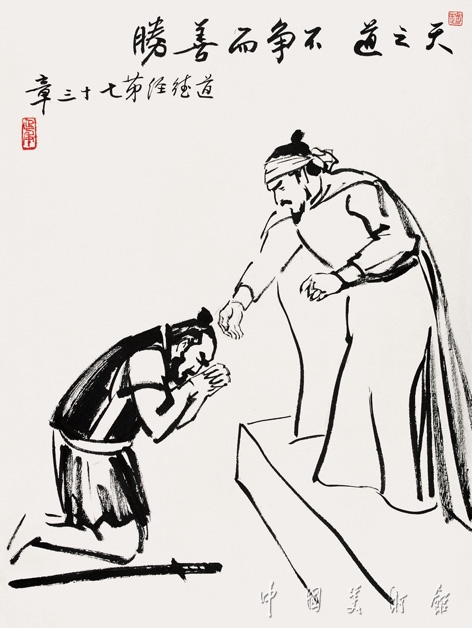 天之道 不争而善勝
道德经第七十三章
中國美術館